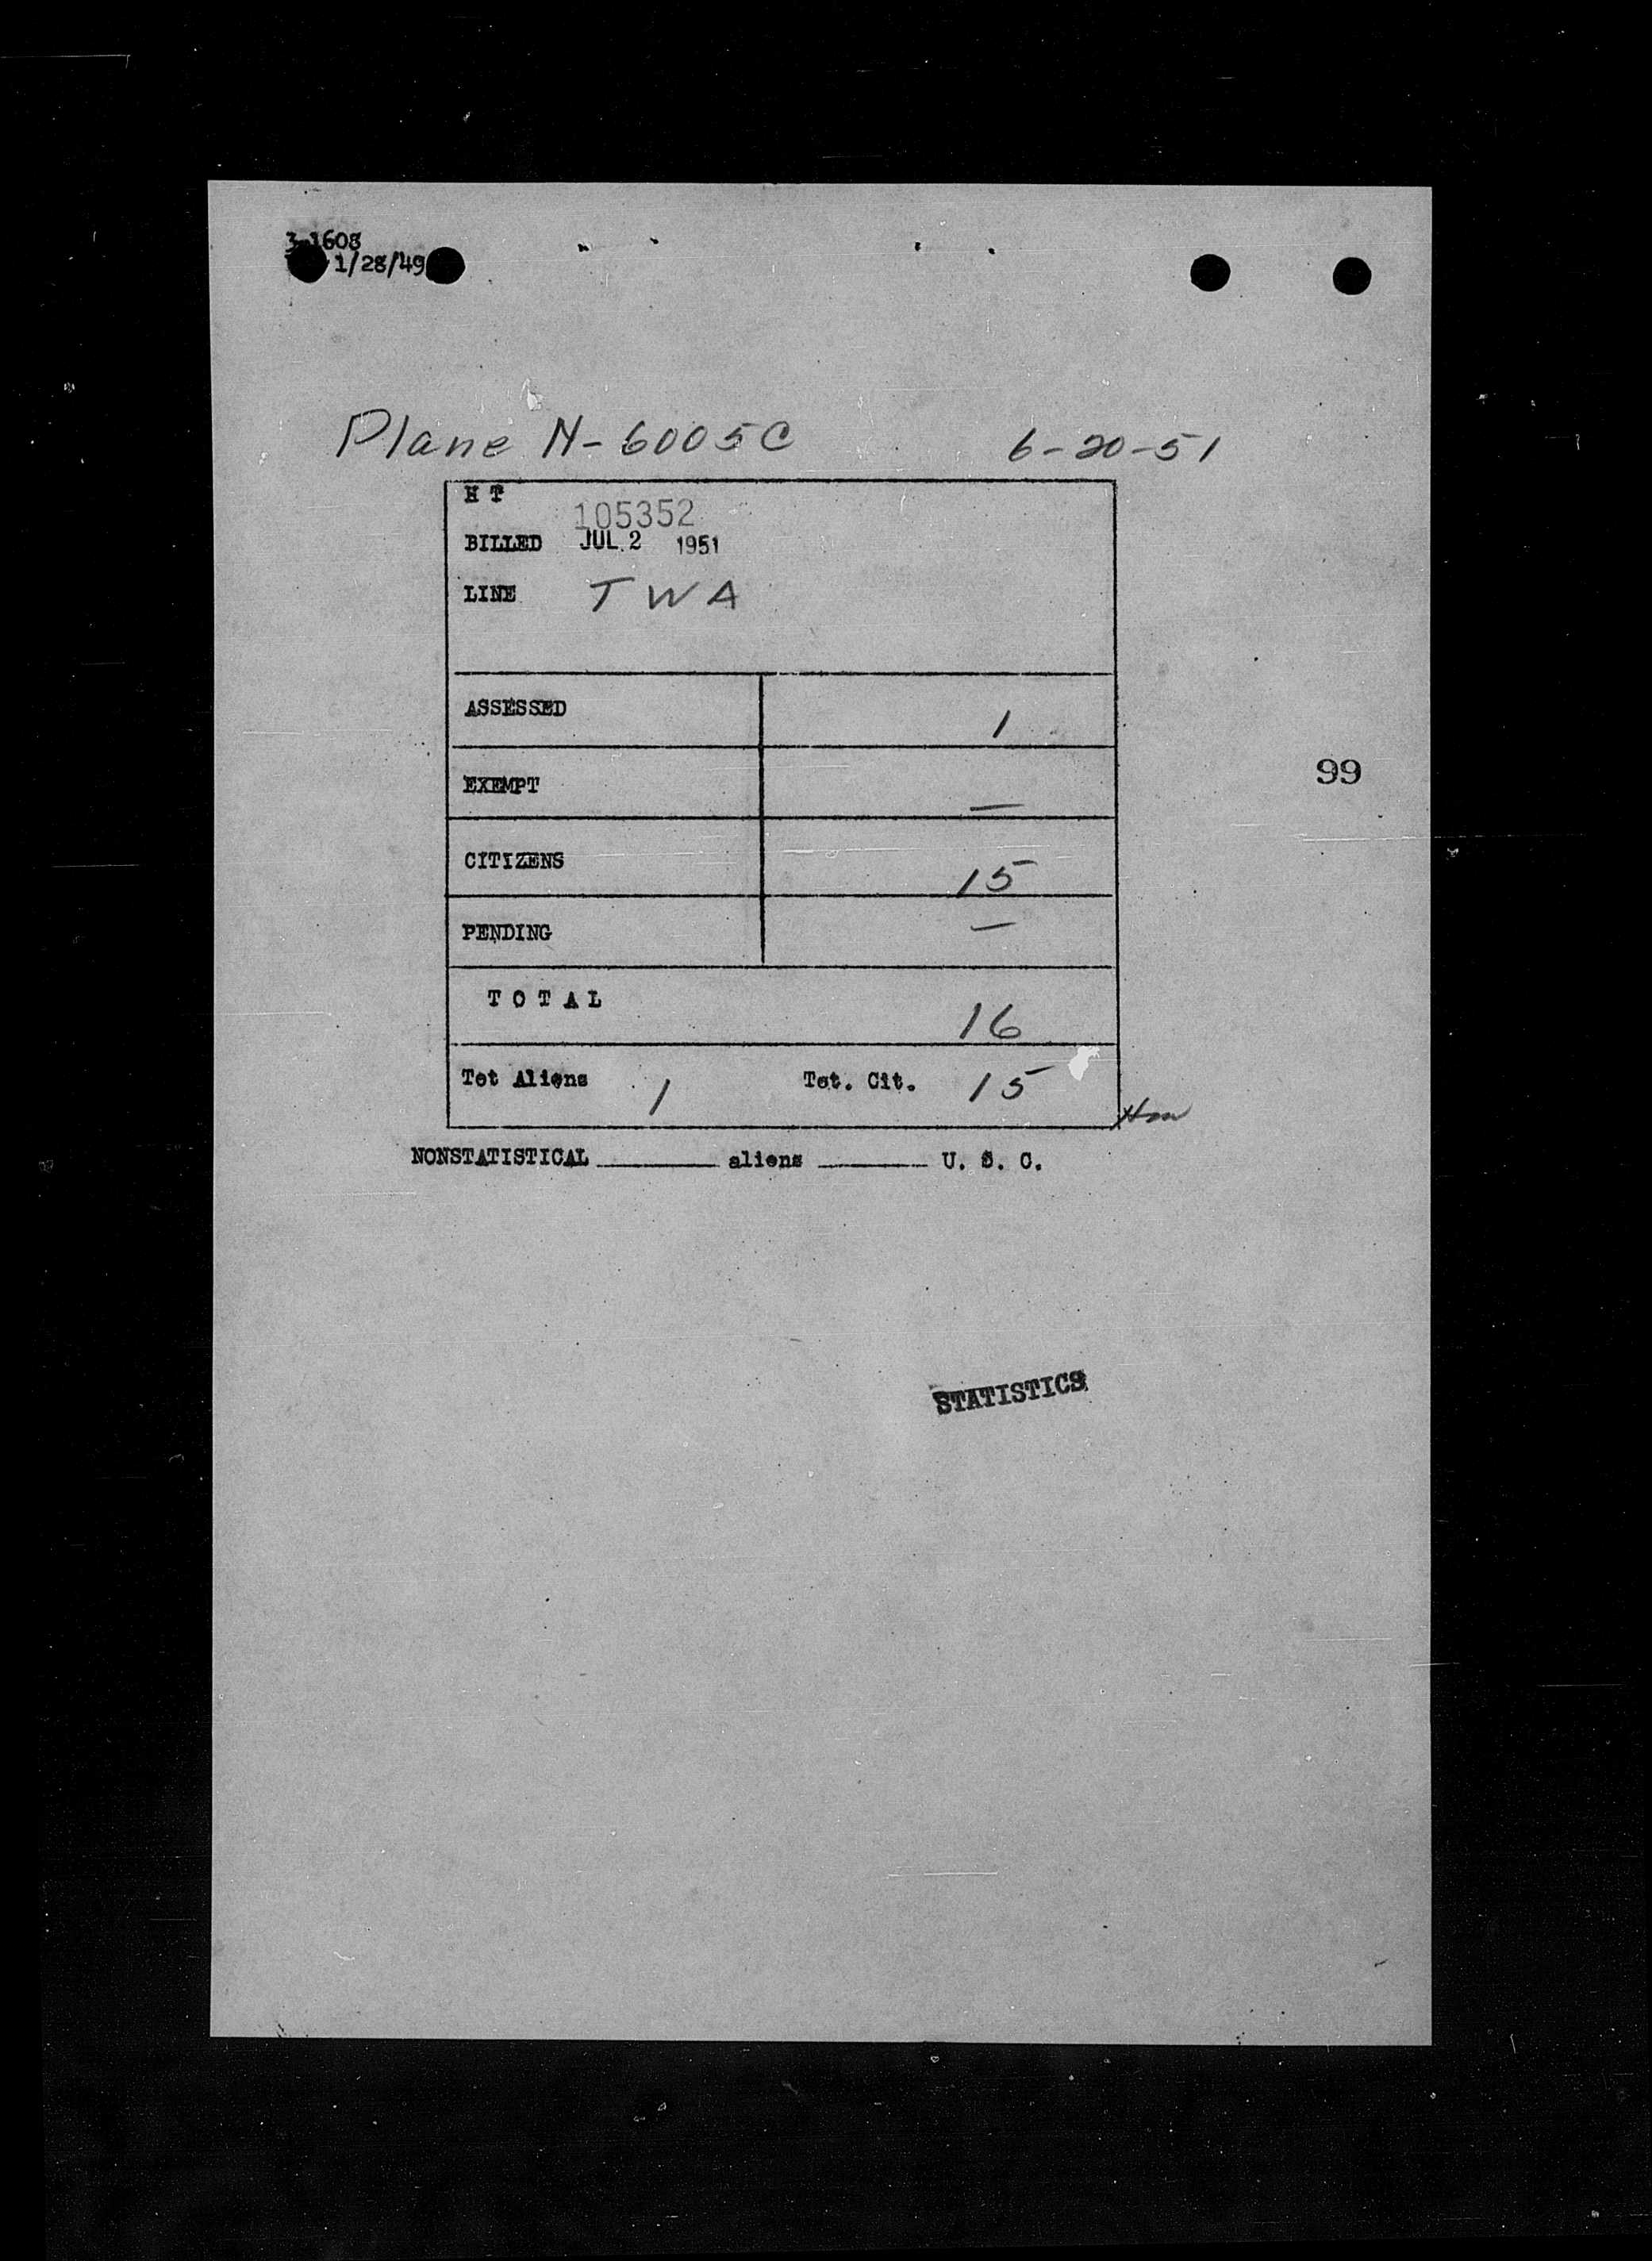 3-1608
1/28/49
Plane N-6005C 6-20-51
H T
105352
BILLED JUL 2 1951
LINE TWA
ASSESSED 1
99
EXEMPT —
CITIZENS 15
PENDING —
T O T A L 16
Tot Aliens 1 Tot. Cit. 15
NONSTATISTICAL ________ aliens ________ U. S. C.
STATISTICS